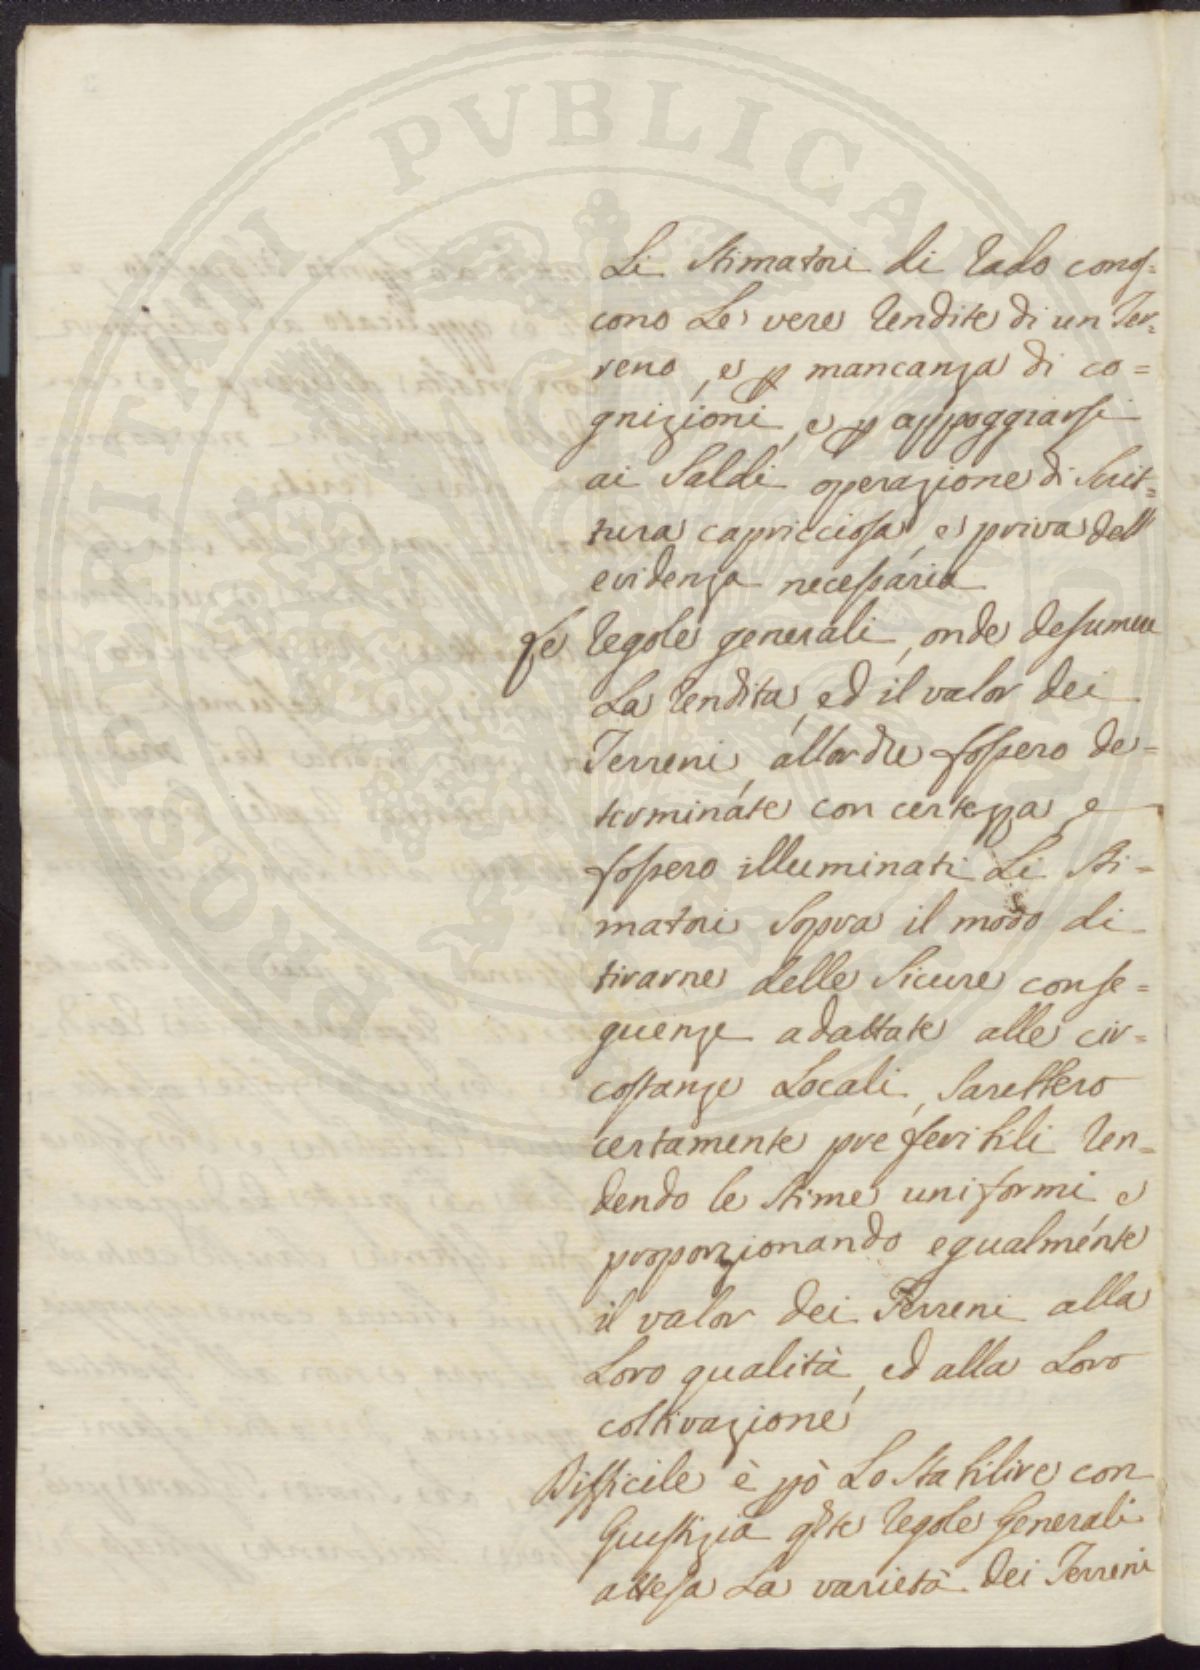 PROSPERITATI PVBLICAE
Li Stimatori di rado conos=
cono Le vere rendite di un Ter=
reno, e p mancanza di co=
gnizioni, e p appoggiarsi
ai Saldi operazione di Scrit=
tura capricciosa, e priva dell
evidenza necessaria
Le regole generali, onde desumere
La rendita, ed il valor dei
Terreni, allor che fossero de=
terminate con certezza, e
fossero illuminati Li Sti=
matori Sopra il modo di
tirarne delle Sicure conse=
guenze adattate alle cir=
costanze Locali, Sarebbero
certamente preferibili ren=
dendo le Stime uniformi, e
proporzionando egualmente
il valor dei Terreni alla
Loro qualità, ed alla Loro
coltivazione
Difficile è pò Lo Stabilire con
Giustizia qste regole Generali
attesa La varietà dei Terreni